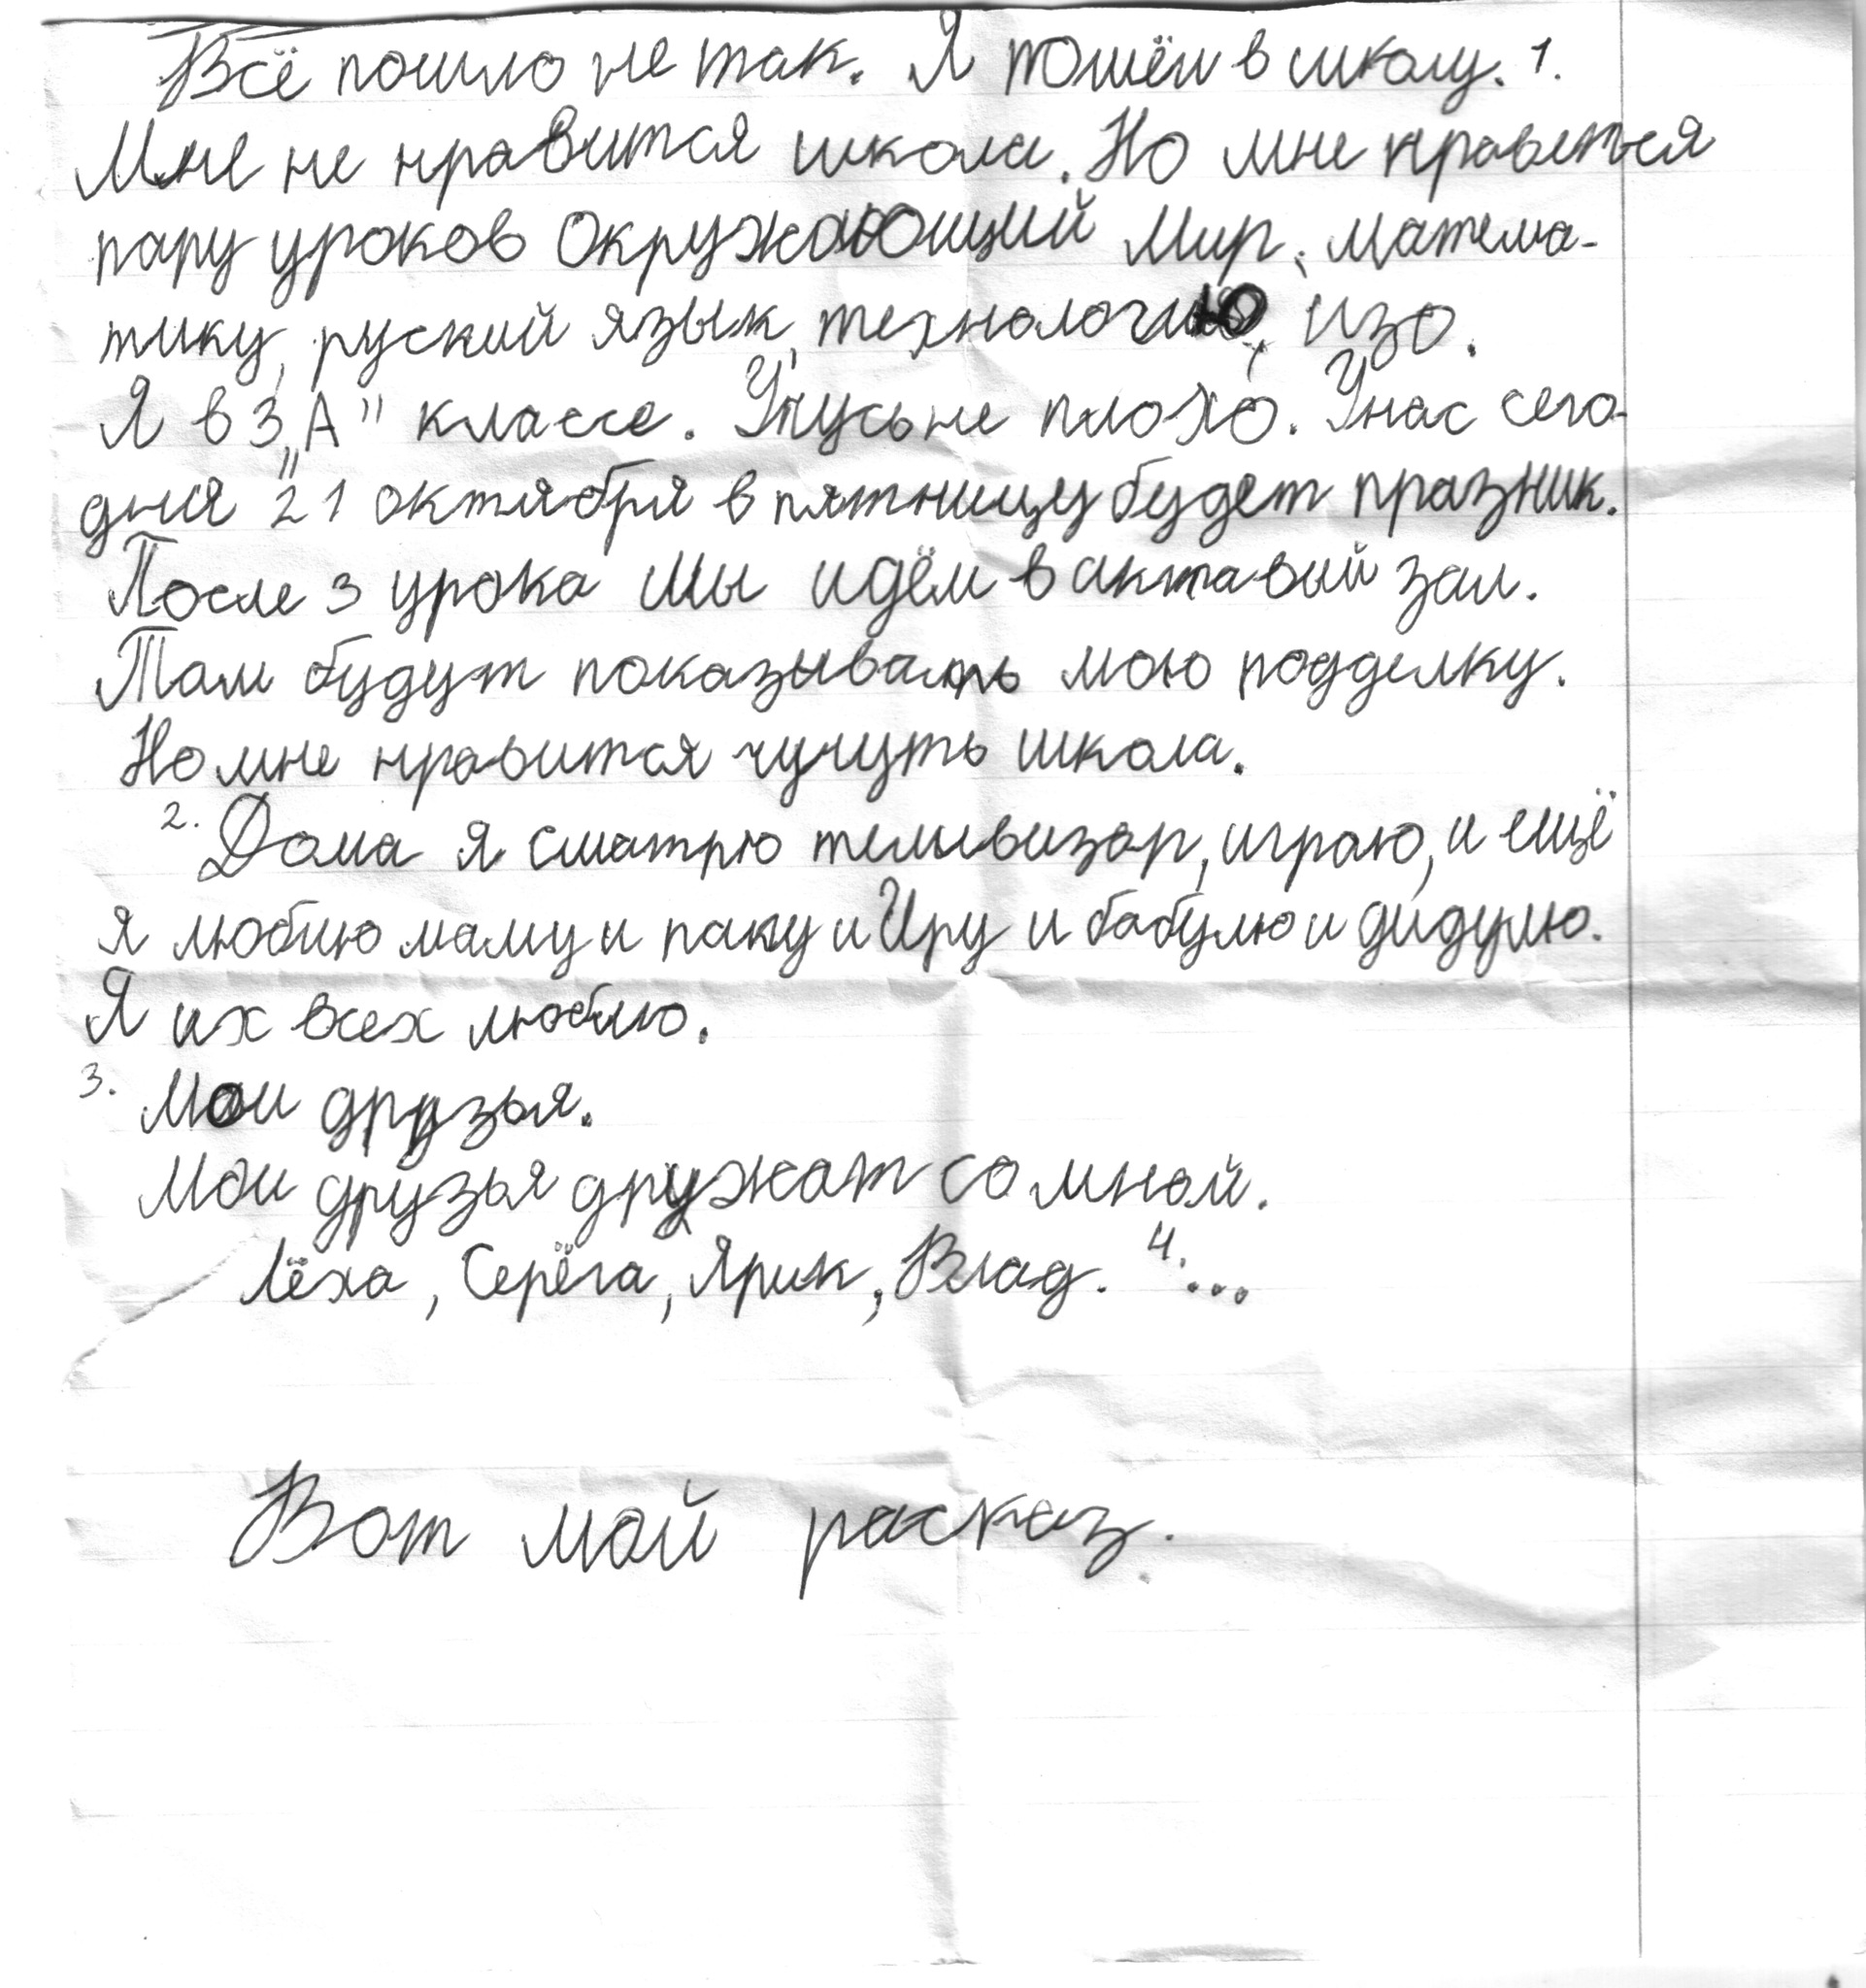 Всё пошло не так. Я пошёл в школу. 1.
Мне не нравится школа. Но мне нраветься
пару уроков Окружающий Мир, матема-
тику, руский язык, технологию, изо.
Я в 3 „А" классе. не плохо. У нас сего-
дня 21 октября в пятницу будет празник.
После 3 урока мы идём в актавый зал.
Там будут показывать мою подделку.
Но мне нравится чучуть школа.
2. Дома я сматрю телевизор, играю, и ещё
я люблю маму и папу и Иру и бабулю и дидулю.
Я их всех люблю.
3. Мои друзья.
Мои друзья дружат со мной.
Лёха, Серёга, Ярик, Влад. 4. ...
Вот мой расказ.